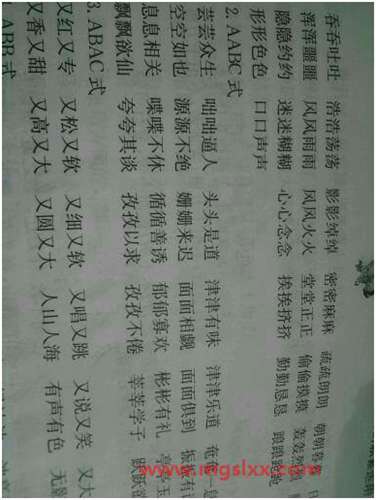 吞吞吐吐 浩浩荡荡 影影绰绰 密密麻麻 疏疏朗朗 朝朝
浑浑噩噩 风风雨雨 风风火火 堂堂正正 偷偷摸摸 轰轰烈
隐隐约约 迷迷糊糊 心心念念 挨挨挤挤 勤勤恳恳 踉踉
形形色色 口口声声
2. AABC 式
芸芸众生 咄咄逼人 头头是道 津津有味 津津乐道 奄
空空如也 源源不绝 姗姗来迟 面面相觑 面面俱到 振振有
息息相关 喋喋不休 循循善诱 郁郁寡欢 彬彬有礼 亭亭玉
飘飘欲仙 夸夸其谈 孜孜以求 孜孜不倦 莘莘学子 跃跃欲
3. ABAC 式
又红又专 又松又软 又细又软 又唱又跳 又说又笑 又大
又香又甜 又高又大 又圆又大 人山人海 有声有色 无
ABB 式
www.mgslxx.com